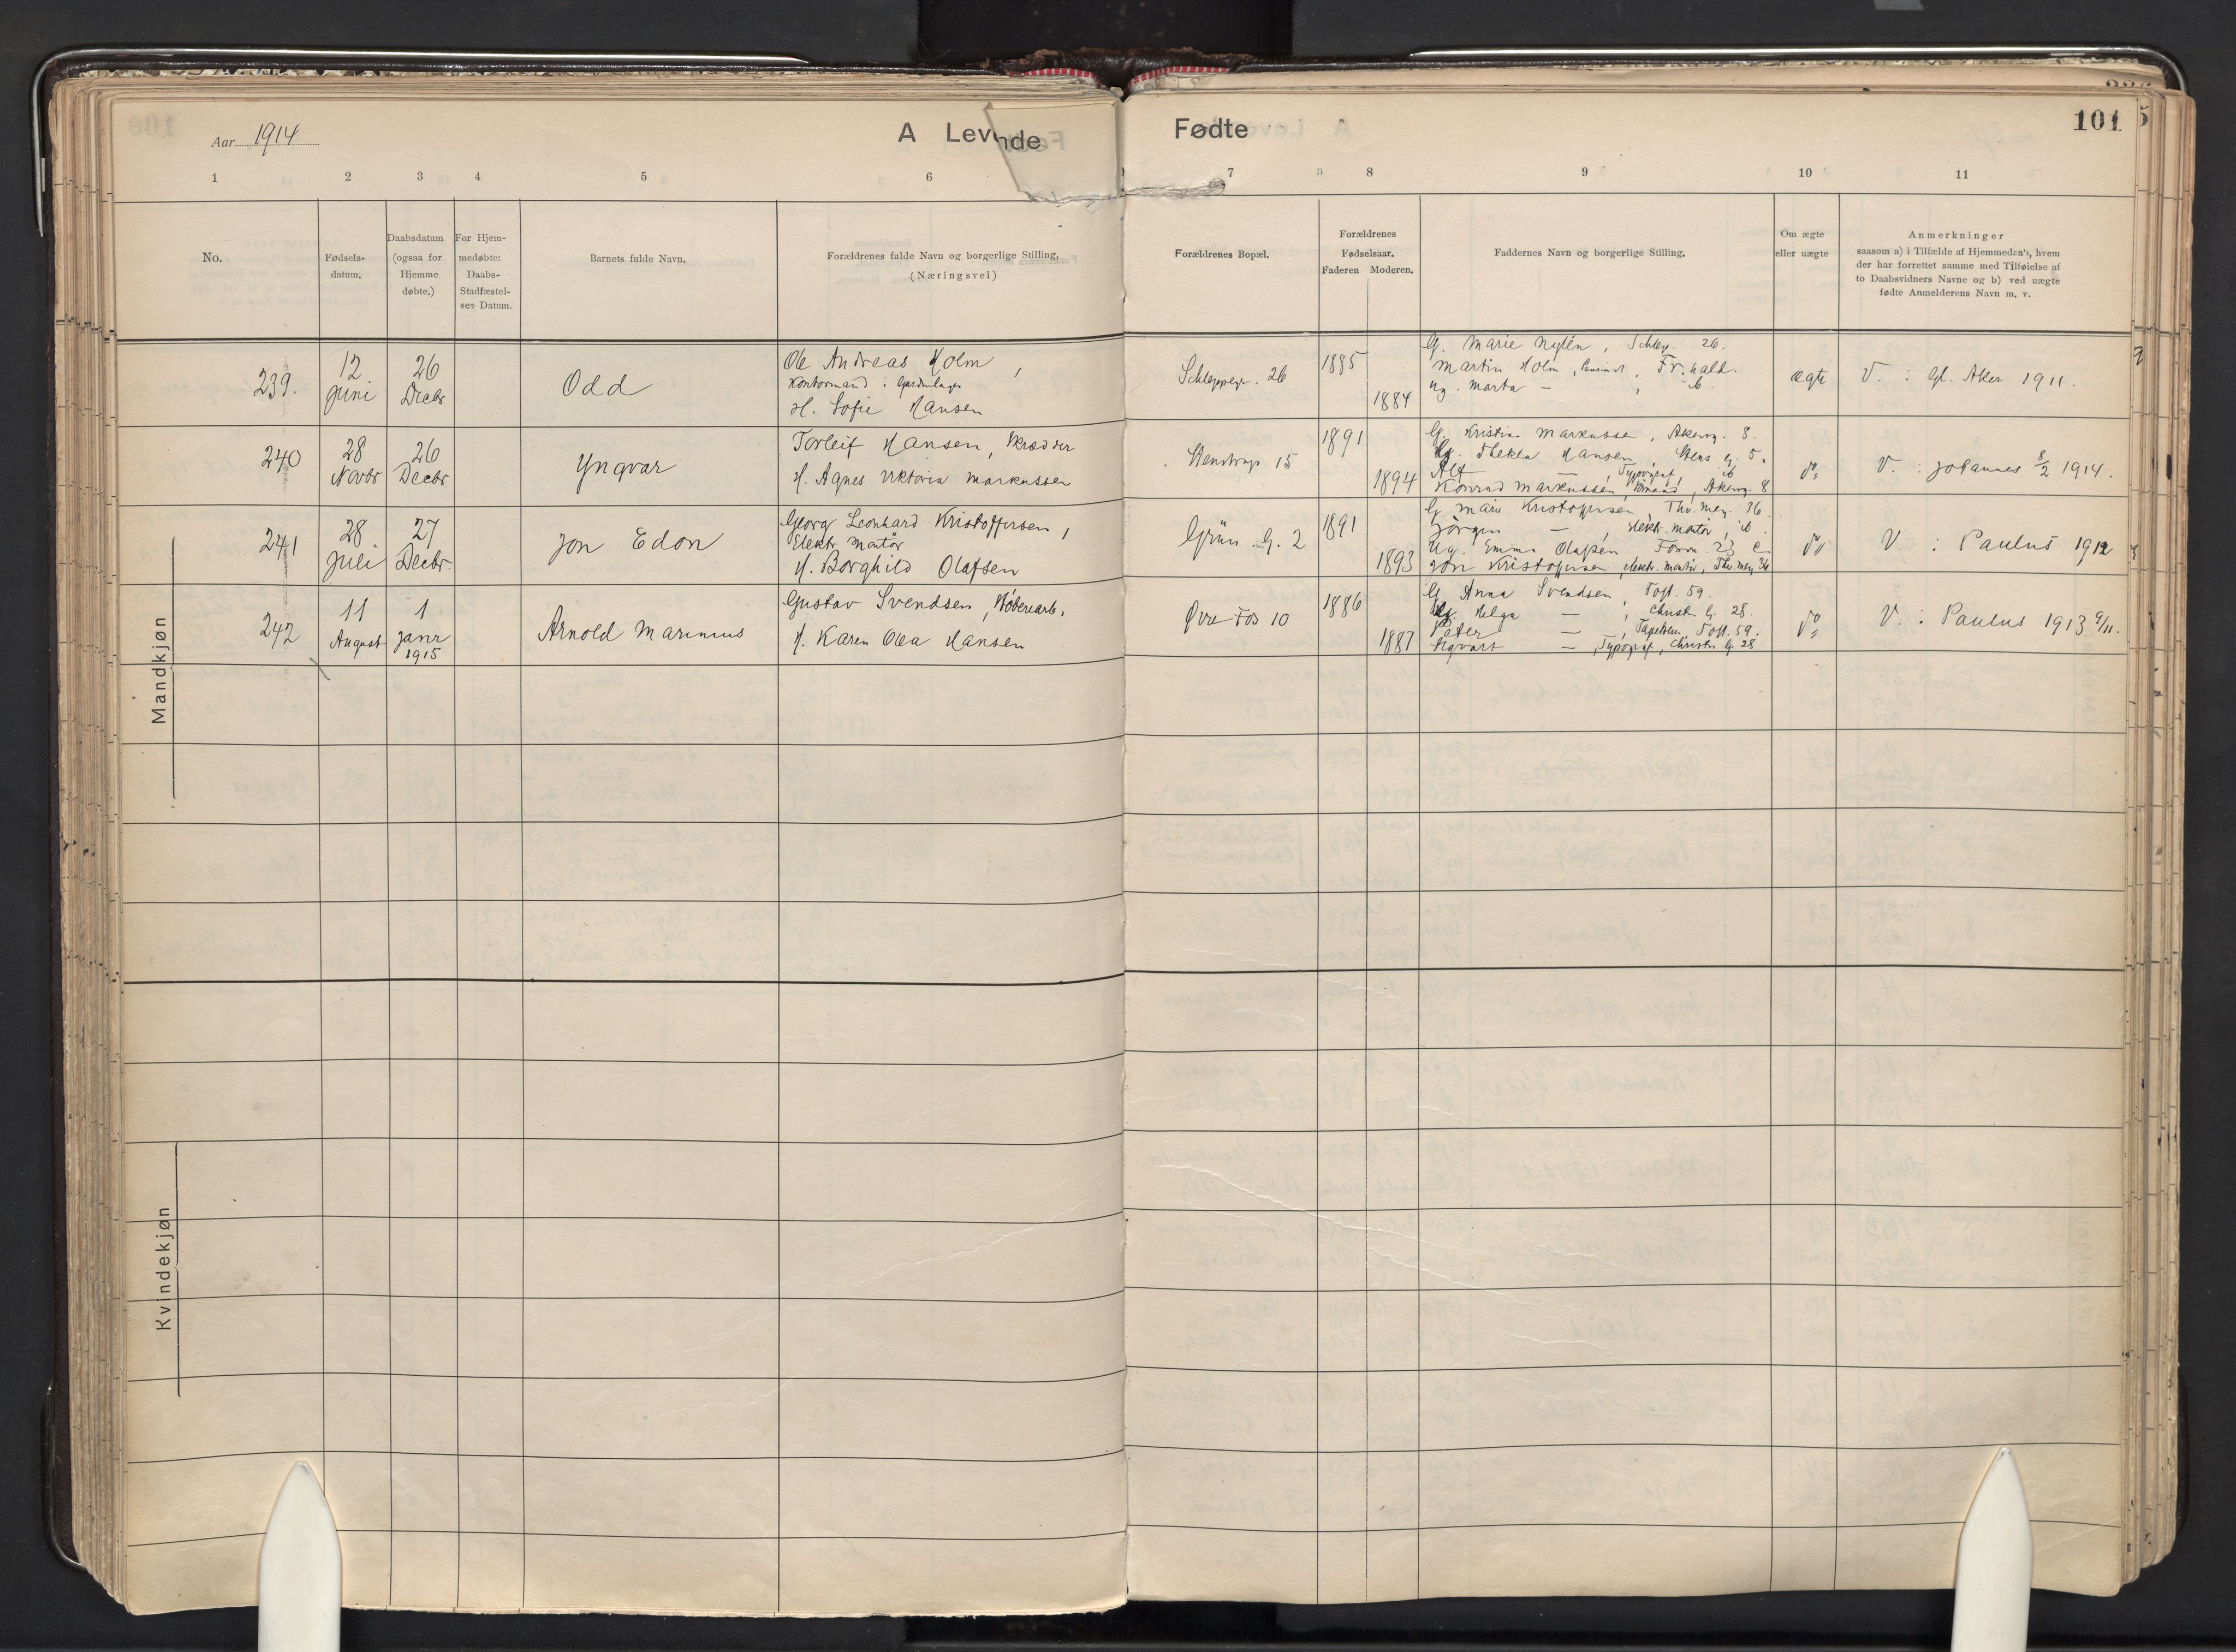 Aar 1914
A Levende Fødte
101
1 2 3 4 5 6 7 8 9 10 11
No.
Fødsels-
datum.
Daabsdatum
(ogsaa for
Hjemme
døbte.)
For Hjem-
medøbte:
Daabs-
Stadfæstel-
ses Datum.
Barnets fulde Navn.
Forældrenes fulde Navn og borgerlige Stilling,
(Næringsvei)
Forældrenes Bopæl.
Forældrenes
Fødselsaar.
Faderen Moderen.
Faddernes Navn og borgerlige Stilling.
Om ægte
eller uægte
Anmerkninger
saasom a) i Tilfælde af Hjemmedøn's, hvem
der har forrettet samme med Tilføielse af
to Daabsvidners Navne og b) ved uægte
fødte Anmelderens Navn m. v.
Mandkjøn
239.
12
Juni
26
Decbr
Odd
Ole Andreas Holm,
Kontormand i
H. Sofie Hansen
Schleppegr. 26
1885
1884
G. Marie Nylén, Schlep. 26.
Martin Holm, Fr.hald.
Ug. Marta — , ib.
ægte
V. : Gl. Aker 1911.
240
28
Novbr
26
Decbr
Yngvar
Torleif Hansen, Skrædder
H. Agnes Viktoria Markussen
Stenstrup 15
1891
1894
G. Kristin Markussen, Akersv. 8.
Ug. Thekla Hansen, Stens g. 5.
Alf — , Typograf, ib
Konrad Markussen, Akersv. 8
do
V. : Johannes 8/2 1914.
241
28
Juli
27
Decbr.
Jon Edon
Georg Leonhard Kristoffersen,
Elektr. Montør
H. Borghild Olafsen
Grün. G. 2
1891
1893
G. Marie Kristoffersen Thv. Mey. 36.
Jörgen — , elektr. montør, ib.
Ug. Emma Olafsen Fossv. 23 c
Jon Kristoffersen, elektr. montør, Thv. Mey. 36
do
V. : Paulus 1912
242
11
August
1
Janr
1915
Arnold Marinius
Gustav Svendsen, Støberiarb.
H. Karen Olea Hansen
Øvre Fos 10
1886
1887
G. Anna Svendsen, Toft. 59.
Ug. Helga — , Christ. G. 28.
Peter — , Tapetsen. Toft. 59.
Sigvart — , Typograf, Christ. G. 28
do
V. : Paulus 1913 9/11.
Kvindekjøn